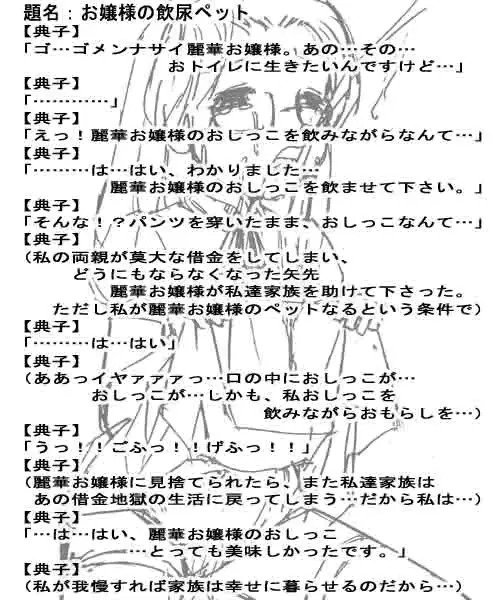 題名：お嬢様の飲尿ペット
【典子】
「ゴ…ゴメンナサイ麗華お嬢様。あの…その…
おトイレに生きたいんですけど…」
【典子】
「…………」
【典子】
「えっ！麗華お嬢様のおしっこを飲みながらなんて…」
【典子】
「………は…はい、わかりました…
麗華お嬢様のおしっこを飲ませて下さい。」
【典子】
「そんな！？パンツを穿いたまま、おしっこなんて…」
【典子】
（私の両親が莫大な借金をしてしまい、
どうにもならなくなった矢先
麗華お嬢様が私達家族を助けて下さった。
ただし私が麗華お嬢様のペットなるという条件で）
【典子】
「………は…はい」
【典子】
（ああっイヤァァァっ…口の中におしっこが…
おしっこが…しかも、私おしっこを
飲みながらおもらしを…）
【典子】
「うっ！！ごふっ！！げふっ！！」
【典子】
（麗華お嬢様に見捨てられたら、また私達家族は
あの借金地獄の生活に戻ってしまう…だから私は…）
【典子】
「…は…はい、麗華お嬢様のおしっこ
…とっても美味しかったです。」
【典子】
（私が我慢すれば家族は幸せに暮らせるのだから…）